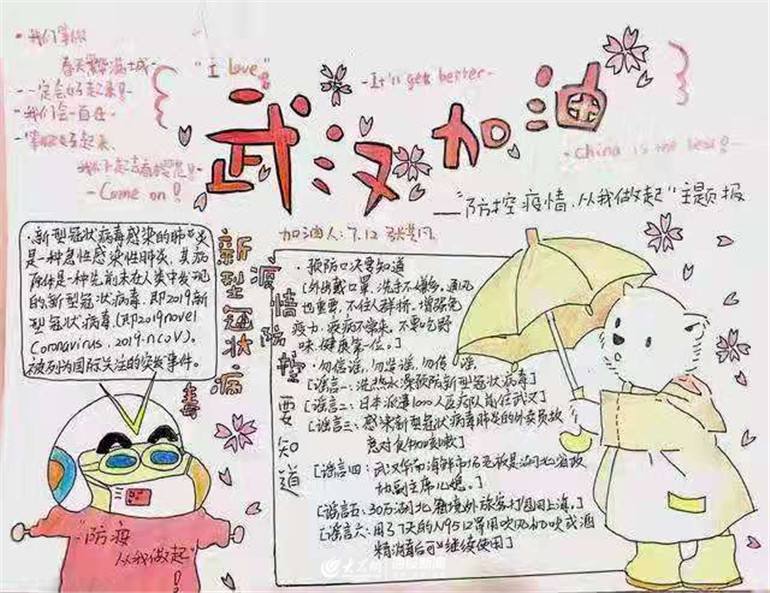 ·我们等你
春天繁华满城~
·一定会好起来!
·我们会一直在
·等你好起来,
我们一起去看樱花!
"I love"
武汉加油
-It'll get better-
-Come on!
-China is the best!-
——"防控疫情,从我做起"主题报
加油人:7.12
·新型冠状病毒感染的肺炎
是一种急性感染性肺炎,其病
原体是一种先前未在人类中发现
的新型冠状病毒,即2019新
型冠状病毒(即2019novel
Coronavirus,2019-nCoV).
被列为国际关注的突发事件。
新型冠状病毒
疫情防控要知道
·预防口决要知道
[外出戴口罩,洗手不嫌多。通风
也重要,不住人群挤。增强免
疫力,疫病不缠来。不要吃野
味,健康第一位。]
·勿信谣,勿造谣,勿传谣
[谣言一:洗热水澡预防新型冠状病毒]
[谣言二:日本派遣1000人医疗队前往武汉]
[谣言三:感染新型冠状病毒肺炎的外卖员故
意对食物咳嗽]
[谣言四:武汉华南海鲜市场
副主席儿媳。]
[谣言五:30万湖北籍境外旅客打道回上海。]
[谣言六:用了7天的N95口罩用吹风机吹或酒
精消毒后可以继续使用]
"防疫
从我做起"!